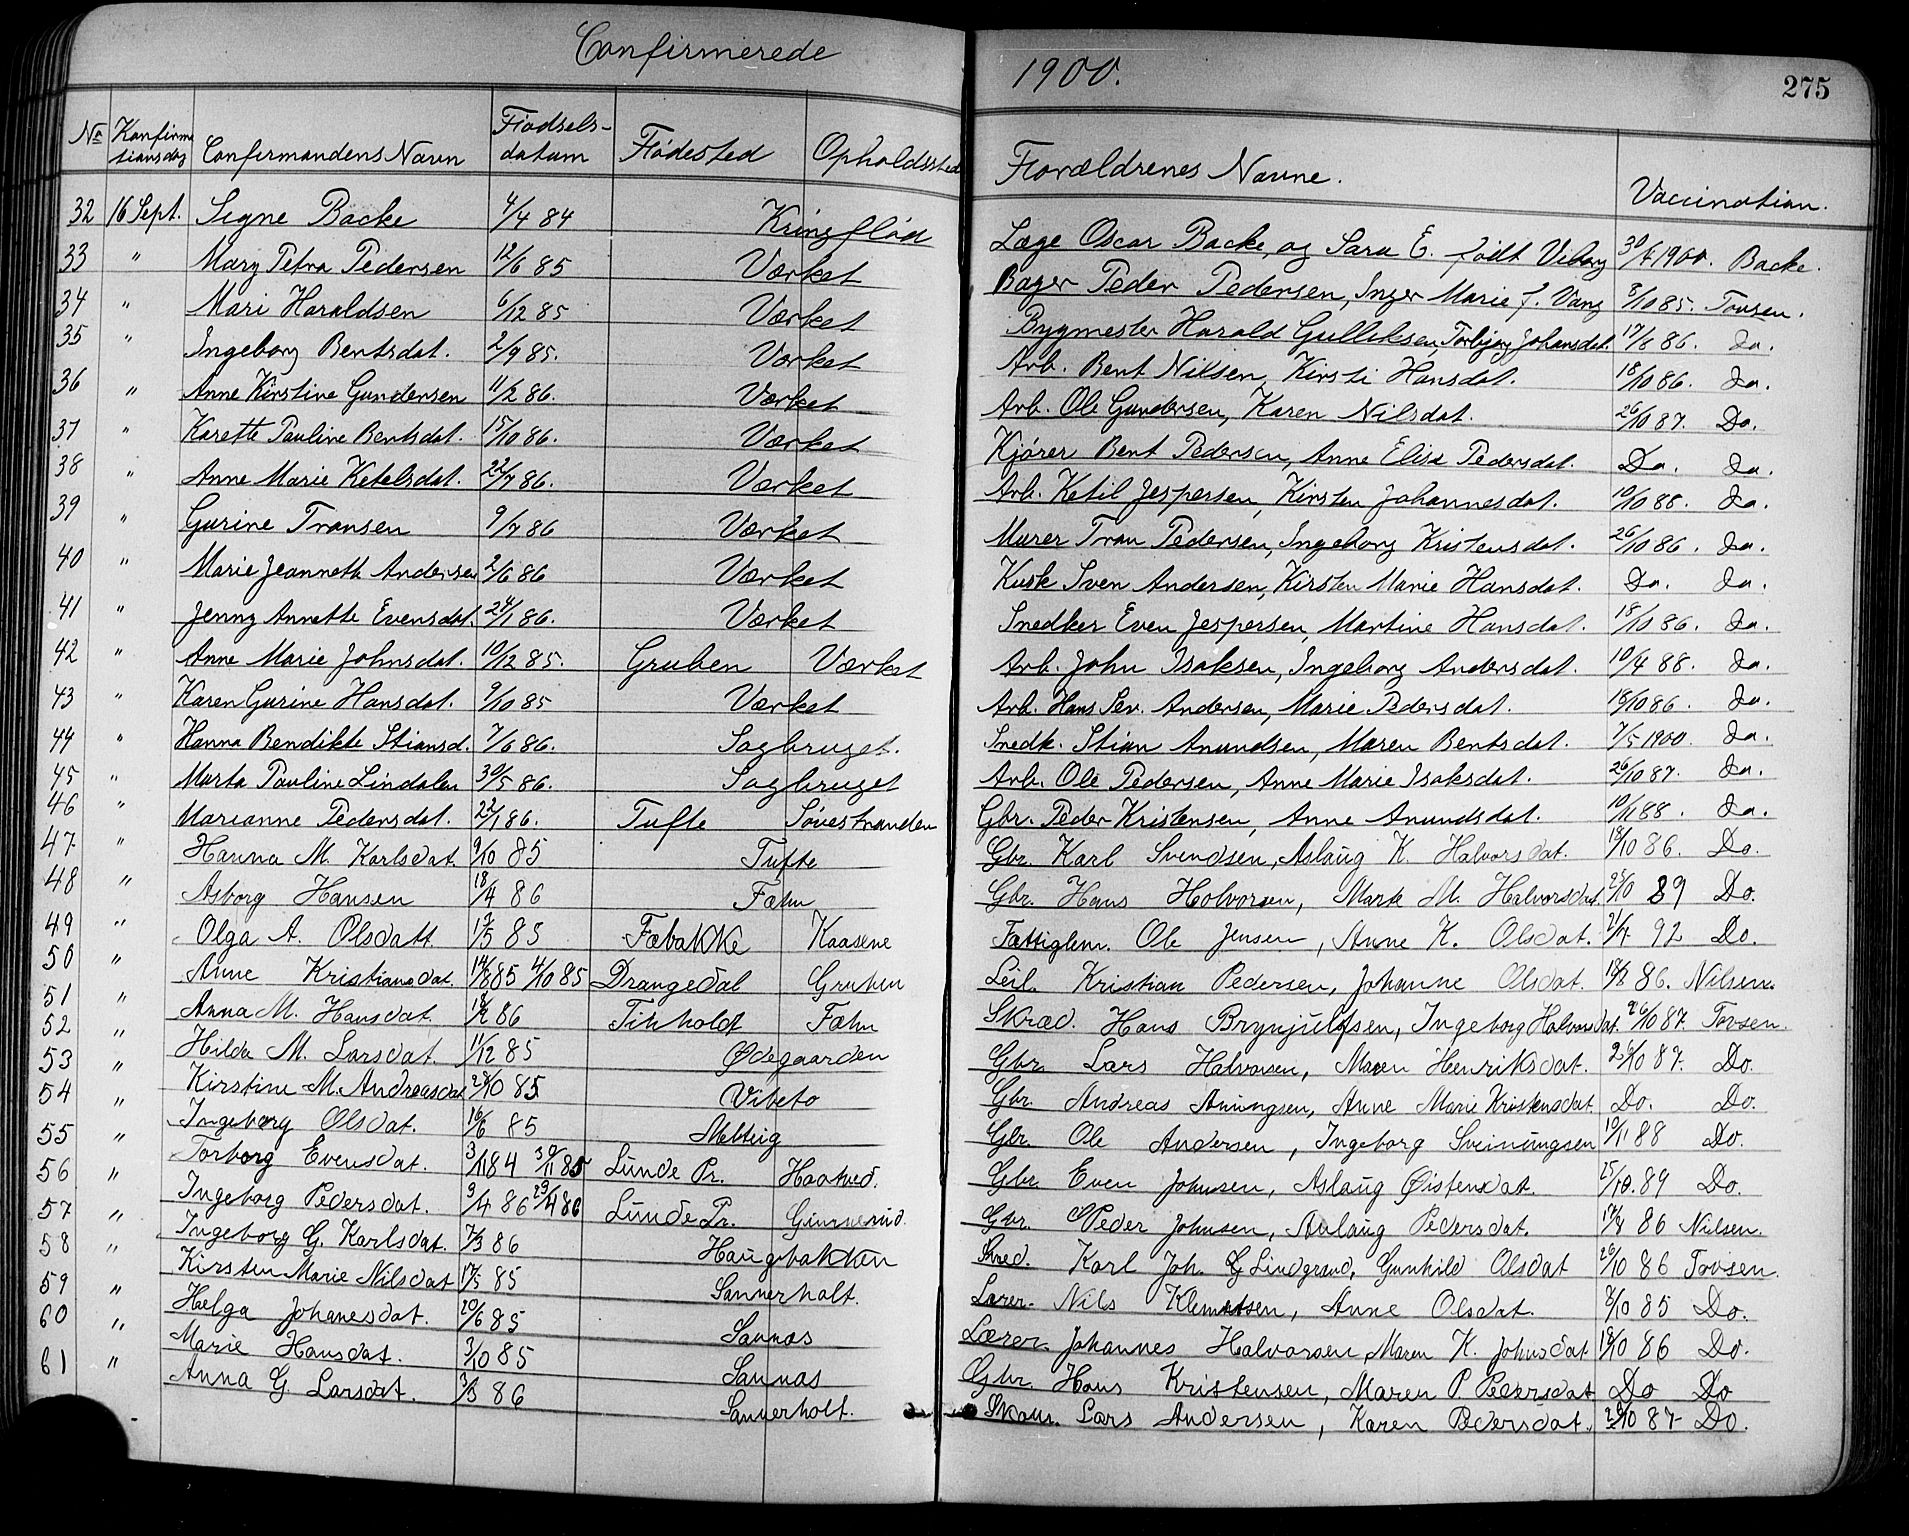 Confirmerede 1900. 275
No Konfirmationsdag Confirmandens Navn Fiødsels-datum Fiødested Opholdssted Foræeldrenes Navne. Vaccination.
32 16 Sept. Signe Backe 4/4 84 Kringsfløid Læge Oscar Backe, og Sara E. født Viborg 30/6 1900. Backe.
33 " Mary Petra Pedersen 12/6 85 Værket Bager Peder Pedersen, Inger Marie f. Vang 8/10 85. Tovsen.
34 " Mari Haraldsen 6/12 85 Værket Bygmester Harald Gulliksen, Torbjørg Johansdat. 17/6 86. do.
35 " Ingeborg Bentsdat. 2/9 85. Værket Arb. Bent Nilsen, Kirsti Hansdat. 18/10 86. do.
36 " Anne Kirstine Gundersen 11/2 86. Værket Arb. Ole Gundersen, Karen Nilsdat. 26/10 87. Do.
37 " Karette Pauline Bentsdat. 15/10 86. Værket Kjører Bent Pedersen, Anne Elise Pedersdat. Do. do.
38 " Anne Marie Ketelsdat. 22/7 86. Værket Arb. Ketil Jespersen, Kirsten Johannesdat. 10/10 88. do.
39 " Gurine Transen 9/7 86 Værket Murer Tran Pedersen, Ingeborg Kristensdat. 26/10 86. do.
40 " Marie Jeanneth Andersen 2/6 86 Værket Kusk Sven Andersen, Kirsten Marie Hansdat. Do. do.
41 " Jenny Annette Evensdat. 24/1 86. Værket Snedker Even Jespersen, Martine Hansdat. 18/10 86. do.
42 " Anne Marie Johnsdat. 10/12 85. Gruben Værket Arb. John Isaksen, Ingeborg Andersdat. 10/4 88. do.
43 " Karen Gurine Hansdat. 9/10 85 Værket Arb. Hans Sev. Andersen, Marie Pedersdat. 18/10 86. do.
44 " Hanna Bendikte Stiansd. 7/6 86. Sagbruget. Snedk. Stian Anundsen, Maren Bentsdat. 7/5 1900. do.
45 " Marta Pauline Lindalen 30/5 86. Sagbruget Arb. Ole Pedersen, Anne Marie Isaksdat. 26/10 87. do.
46 " Marianne Pedersdat. 22/1 86. Tufte Søvestranden Gbr. Peder Kristensen, Anne Anundsdat. 10/11 88. do.
47. " Hanna M. Karlsdat. 9/10 85 Tufte Gbr. Karl Svendsen, Aslaug K. Halvorsdat. 18/10 86. Do.
48 " Asborg Hansen 18/4 86 Fæhn Gbr. Hans Holvorsen, Marte M. Halvorsdat. 25/10 89 Do.
49 " Olga A. Olsdatt 17/5 85 Fæbakke Kaasene Fattiglem. Ole Jensen, Anne K. Olsdat. 92 Do.
50 " Anne Kristiansdat. 14/8 85 4/10 85 Drangedal Gruben Leil. Kristian Pedersen, Johanne Olsdat. 18/8 86. Nilsen.
51 " Anna M. Hansdat. 86 Tihholdt Fæhn Skræd. Hans Brynjulfsen, Ingeborg Halvorsdat. 26/10 87. Tovsen.
52 " Hilda M. Larsdat. 11/12 85 Ødegaarden Gbr. Lars Halvorsen, Maren Henriksdat. 26/10 87. Do.
53 " Kirstine M. Andreasdat 85 Vibeto Gbr. Andreas Anungsen, Anne Marie Kristensdat. Do. Do.
54 " Ingeborg Olsdat. 16/6 85 Melteig Gbr. Ole Andersen, Ingeborg Sveinungsen 10/11 88 Do.
55 " Torborg Evensdat. 3/11 84 30/11 85 Lunde Pr. Haatved. Gbr. Even Johnsen, Aslaug Øistensdat. 25/10. 89 Do.
56 " Ingeborg Pedersdat. 3/4 86 23/4 86 Lunde Pr. Gbr. Peder Johnsen, Aslaug Pedersdat. 86 Nilsen.
57 " Ingeborg G. Karlsdat. 7/3 86 Haugbakken Sned. Karl Joh. G Lindgrend, Gunhild Olsdat 26/10 86 Tovsen.
58 " Kirsten Marie Nilsdat 17/5 85 Sannerholt. Lærer. Nils Klemetsen, Anne Olsdat. 8/10 85 Do.
59 " Helga Johanesdat. 20/6 85 Sannas Lærer. Johannes Halvorsen, Maren K. Johnsdat. 18/10 86 Do.
60 " Marie Hansdat. 3/10 85 Sannas Gbr. Hans Kristensen, Maren P Pedersdat Do Do
61 " Anna G Larsdat. 3/3 86 Sannerholt. Lars Andersen, Karen Pedersdat. 26/10 87 Do.